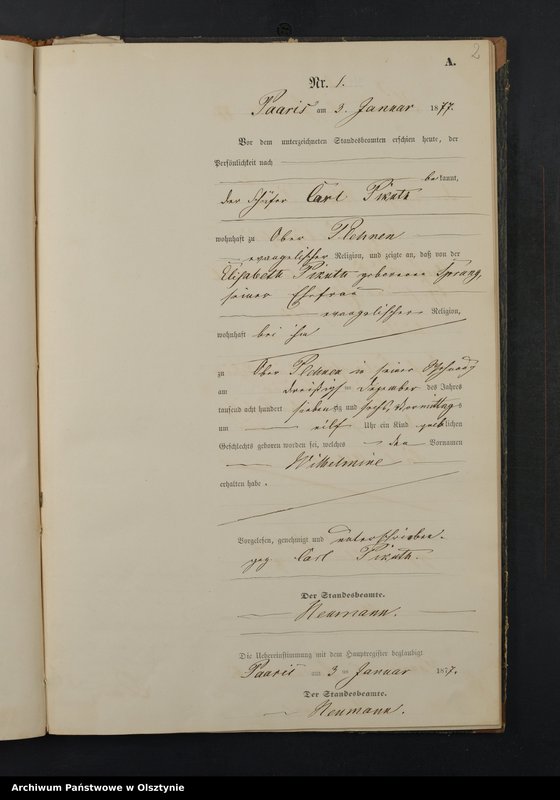 2
A.
Nr. 1.
Paaris am 3. Januar 1877.
Vor dem unterzeichneten Standesbeamten erschien heute, der
Persönlichkeit nach
bekannt,
der Schäfer Carl
wohnhaft zu Ober Plehnen
evangelischer Religion, und zeigte an, daß von der
Elisabeth geborenen Sprang,
seiner Ehefrau
evangelischer Religion,
wohnhaft bei ihm
zu Ober Plehnen in seiner Wohnung
am dreißigsten Dezember des Jahres
tausend acht hundert siebenzig und sechs Vormittags
um eilf Uhr ein Kind weiblichen
Geschlechts geboren worden sei, welches den Vornamen
Wilhelmine
erhalten habe.
Vorgelesen, genehmigt und unterschrieben.
gez Carl
Der Standesbeamte.
Neumann.
Die Uebereinstimmung mit dem Hauptregister beglaubigt
Paaris am 3 ten Januar 1877.
Der Standesbeamte.
Neumann.
Archiwum Państwowe w Olsztynie